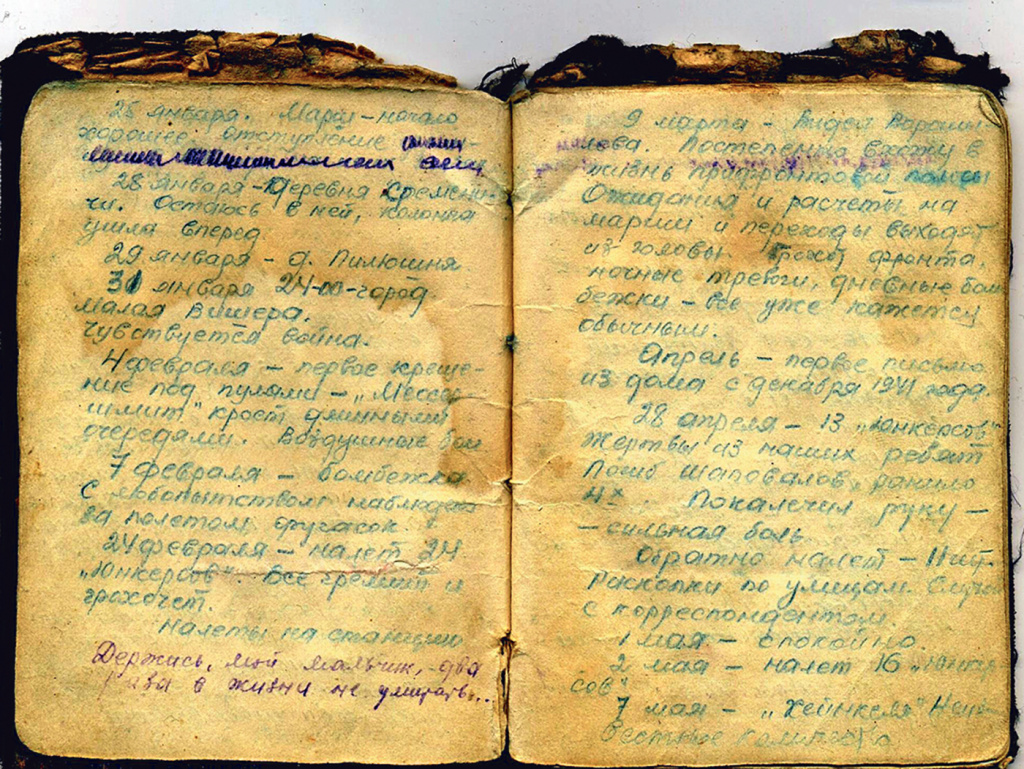 25 января. Марш - начало
хорошее отступление
28 января - Деревня Кремени-
чи. Остаюсь в ней, колонна
ушла вперед
29 января - д. Пилюшня.
30 января 24-00 - город
Малая Вишера.
Чувствуется война.
4 февраля - первое креще-
ние под пулями - „Мессер
шмит" кроет длинными
очередями. Воздушные бои
7 февраля - бомбежка
С любопытством наблюдаю
за полетом фугасок
24 февраля - налет 24
„Юнкерсов". Все гремит и
грохочет.
Налеты на станцию
Держись, мой мальчик, - два
раза в жизни не умирать...
9 марта - Видел Вороши-
лова. Постепенно вхожу в
жизнь прифронтовой полосы
Ожидания и расчеты на
марши и переходы выходят
из головы. Грохот фронта,
ночные тревоги, дневные бом
бежки - все уже кажется
обычным.
Апрель - первое письмо
из дома с декабря 1941 года.
28 апреля - 13 „Юнкерсов"
Жертвы из наших ребят
Погиб Шаповалов, ранило
4х. Покалечил руку -
- сильная боль
Обратно налет -
Раскопки по улицам.
с корреспондентом.
1 мая - спокойно.
2 мая - налет 16 „Юнкер
сов"
7 мая - „Хейнкеля" Неиз-
вестное количество